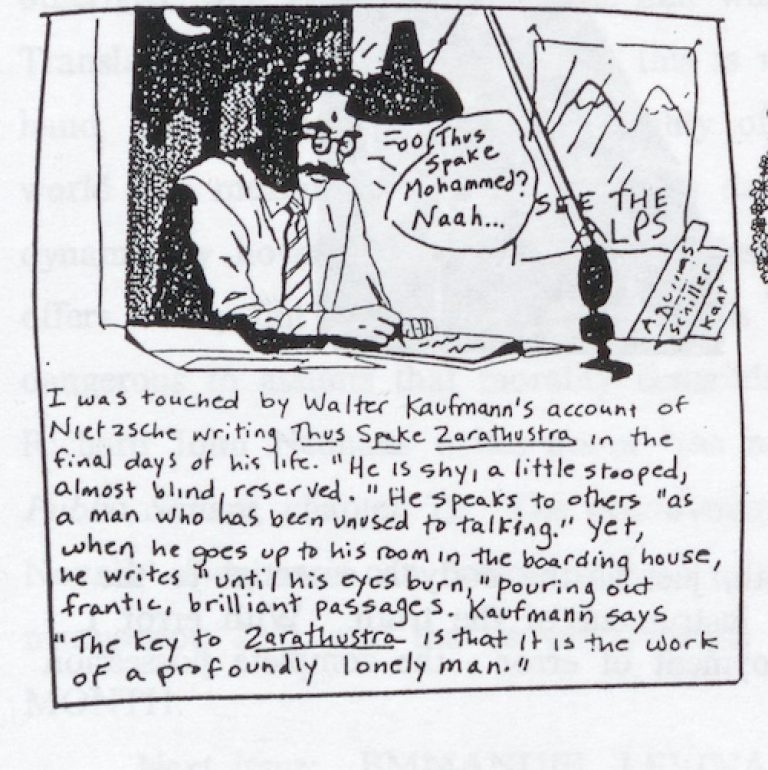 Thus
Spake
Mohammed?
Naah...
SEE THE
ALPS
A. Dumas
Schiller
Kant
I was touched by Walter Kaufmann's account of
Nietzsche writing Thus Spake Zarathustra in the
final days of his life. "He is shy, a little stooped,
almost blind, reserved." He speaks to others "as
a man who has been unused to talking." Yet,
when he goes up to his room in the boarding house,
he writes "until his eyes burn," pouring out
frantic, brilliant passages. Kaufmann says
"The key to Zarathustra is that it is the work
of a profoundly lonely man."